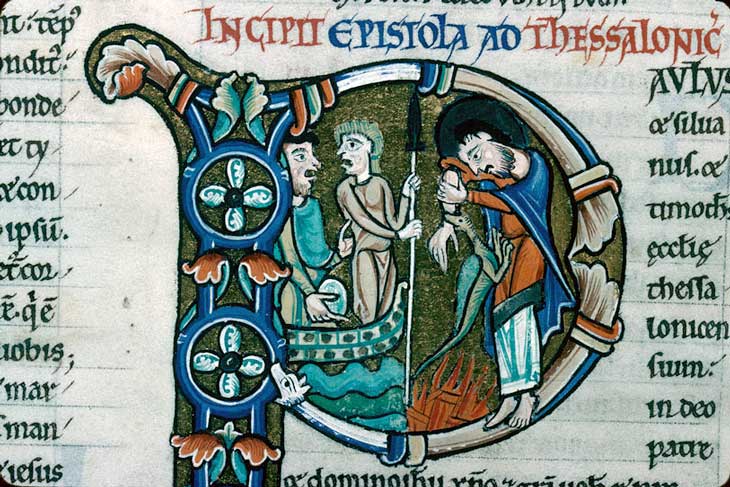 ondit:
bonde
et ty
con
ipsū.
uobis;
mar
man
iesus
INCIPIT EPISTOLA AD THESSALONIC̄
AULUS
& silua
nus. &
timoth
ęcclię
thessa
lonicen
sium:
in deo
patre
& domino ihu xp̄o